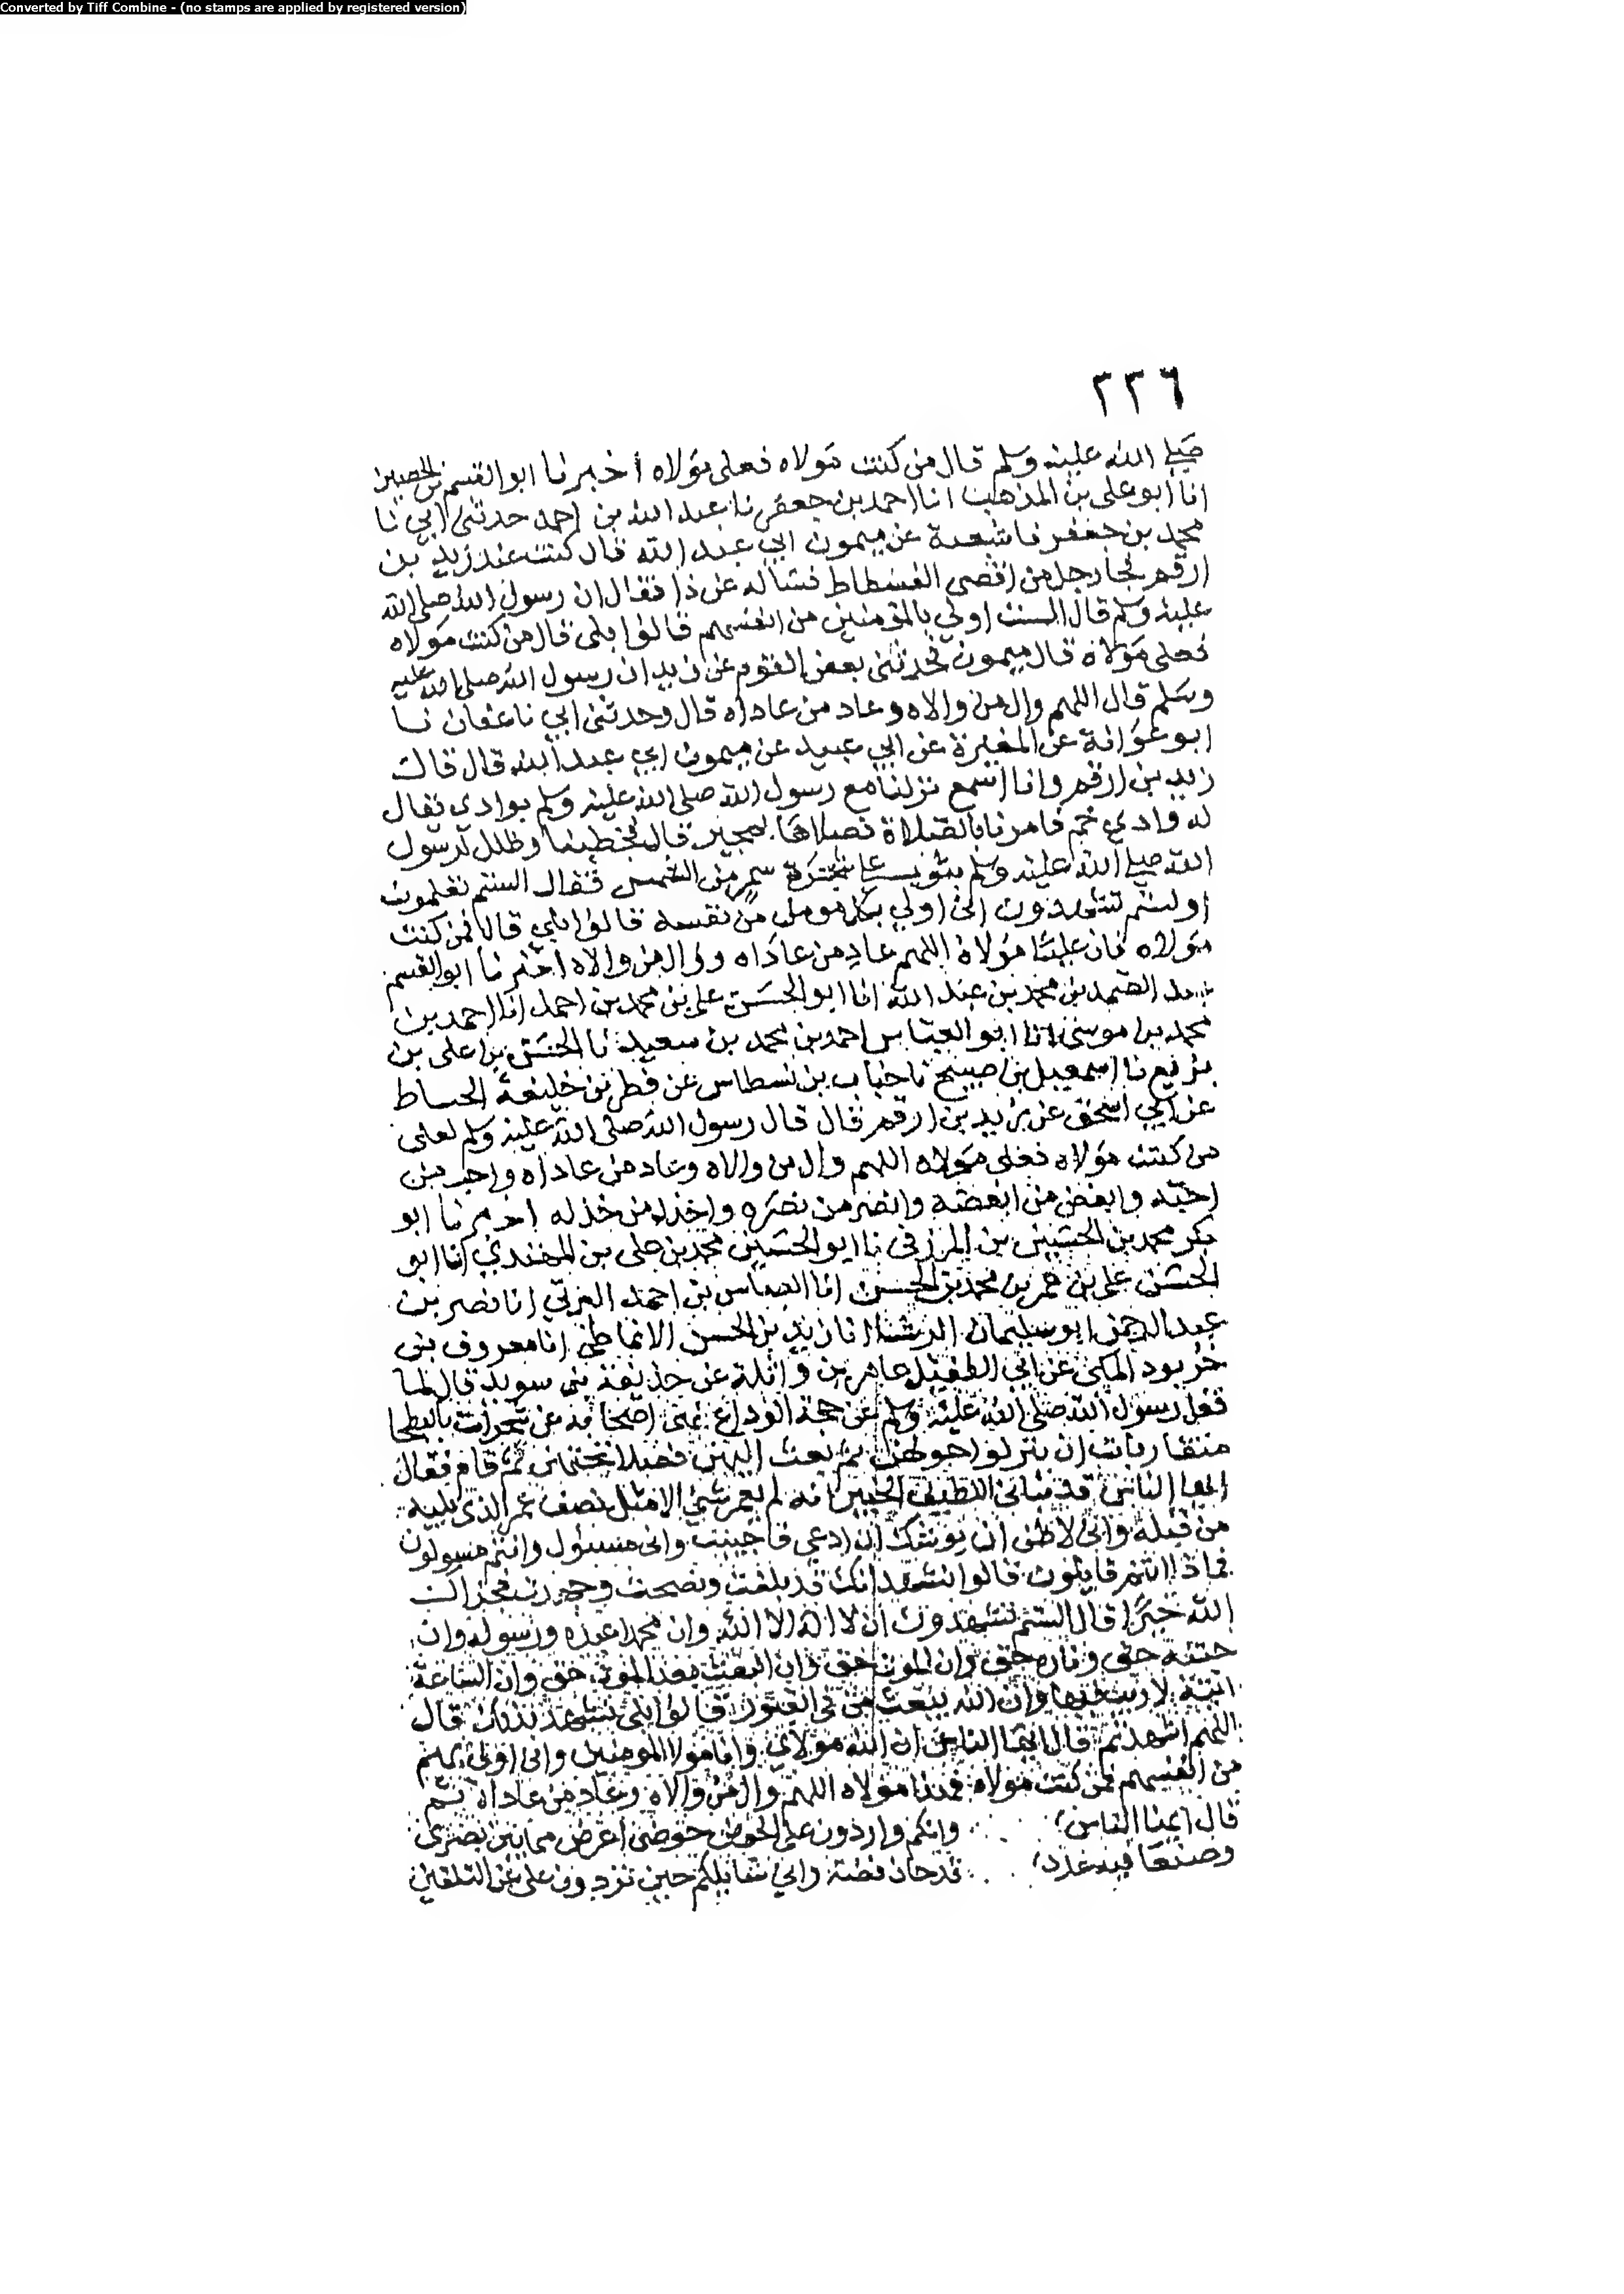 Converted by Tiff Combine - (no stamps are applied by registered version)
٢٢٦
صلى الله عليه وسلم قال من كنت مولاه فعلى مولاه أخبرنا ابو القسم بن الحصين
انا أبو على بن المذهب انا احمد بن جعفر نا عبد الله بن احمد حدثنى ابي نا
محمد بن جعفر نا شعبة عن ميمون ابي عبد الله قال كنت عند زيد بن
ارقم فجا رجل من اقصى الفسطاط فسأله عن ذا فقال ان رسول الله صلى الله
عليه وسلم قال الست اولي بالمؤمنين من انفسهم قالوا بلى قال من كنت مولاه
فعلى مولاه قال ميمون فحدثنى بعض القوم عن زيد ان رسول الله صلى الله عليه
وسلم قال اللهم وال من والاه وعاد من عاداه قال وحدثنى ابي نا عفان نا
ابو عوانة عن المغيرة عن ابي عبيد عن ميمون ابي عبد الله قال قال
زيد بن ارقم وانا اسمع نزلنا مع رسول الله صلى الله عليه وسلم بوادى يقال
له وادي خم فامرنا بالصلاة فصلاها بهجير قال فخطبنا وظلل لرسول
الله صلى الله عليه وسلم بثوب على شجرة سمر من الشمس فقال الستم تعلمون
اولستم تشهدون اني اولي بكل مومن من نفسه قالوا بلي قال فمن كنت
مولاه فان عليا مولاه اللهم عاد من عاداه ووال من والاه اخبرنا ابو القسم
عبد الصمد بن محمد بن عبد الله انا ابو الحسن على بن محمد بن احمد انا احمد بن
محمد بن موسى انا ابو العباس احمد بن محمد بن سعيد نا الحسن بن على بن
بزيع نا اسمعيل بن صبيح نا جناب بن نسطاس عن فطر بن خليفة الحساط
عن ابي اسحق عن يزيد بن ارقم قال قال رسول الله صلى الله عليه وسلم لعلى
من كنت مولاه فعلى مولاه اللهم وال من والاه وعاد من عاداه واحب من
احبه وابغض من ابغضه وانصر من نصره واخذل من خذله اخبرنا ابو
بكر محمد بن الحسين بن المزرفى نا ابو الحسين محمد بن على بن المهتدي انا ابو
الحسن على بن عمر بن محمد بن الحسن انا العباس بن احمد البرتي انا نصر بن
عبد الرحمن ابو سليمان الوشا انا زيد بن الحسن الانماطى انا معروف بنى
خربود المكى عن ابي الطفيل عامر بن واثلة عن حذيفة بنى سويد قال لما
قفل رسول الله صلى الله عليه وسلم عن حجة الوداع نهى اصحابه عن شجرات بالبطحا
متقاربات ان ينزلوا حولهن ثم بعث اليهن فصلا تحتهن ثم قام فقال
ايها الناس قد نبأني اللطيف الخبير انه لم يعمر نبي الا مثل نصف عمر الذى يليه
من قبله وانى لاظن ان يوشك ان ادعى فاجيب وانى مسئول وانتم مسولون
فماذا انتم قايلون قالوا نشهد انك قد بلغت ونصحت وجهدت فجزاك
الله خيرا قال الستم تشهدون ان لا اله الا الله وان محمدا عبده ورسوله وان
جنته حق وناره حق وان الموت حق وان البعث بعد الموت حق وان الساعة
اتية لا ريب فيها وان الله يبعث من فى القبور قالوا بلى نشهد بذلك قال
اللهم اشهد ثم قال ايها الناس ان الله مولاي وانا مولا المومنين وانى اولى بهم
من انفسهم فمن كنت مولاه فهذا مولاه اللهم وال من والاه وعاد من عاداه ثم
قال ايها الناس وانكم واردون على الحوض حوضى اعرض مما بين بصرى
وصنعا فيه عدد قدحان فضة واني سايلكم حين تردون على عن الثقلين